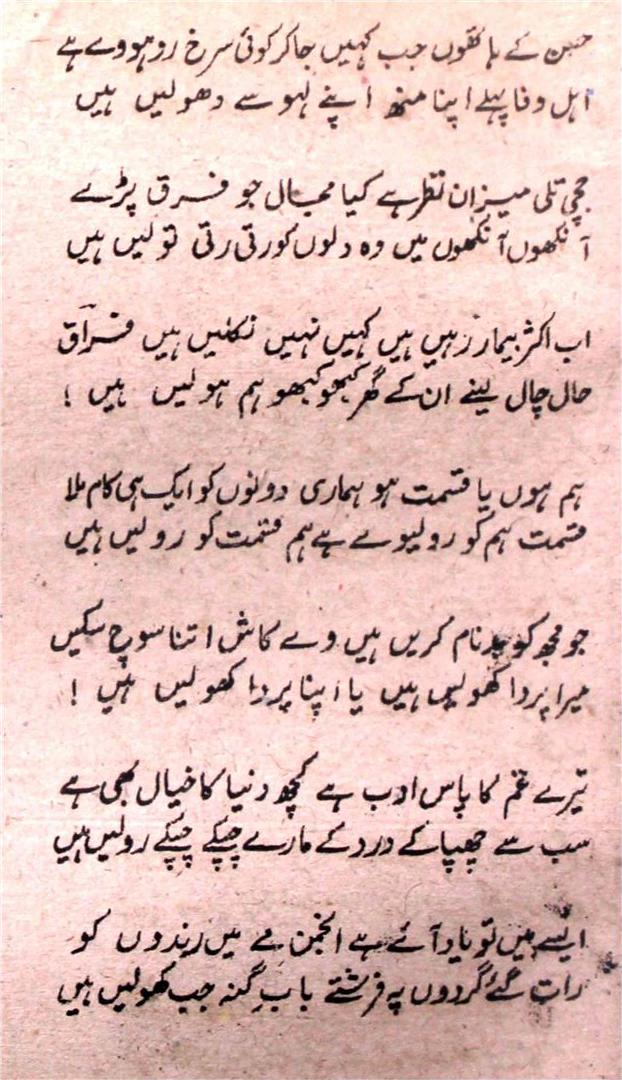 حسن کے ہاتھوں جب کہیں جا کر کوئی سرخ رو ہووے ہے
اہل وفا پہلے اپنا منھ اپنے لہو سے دھولیں ہیں
جچی تلی میزان نظر ہے کیا مجال جو فرق پڑے
آنکھوں آنکھوں میں وہ دلوں کو رتی رتی تولیں ہیں
اب اکثر بیمار رہیں ہیں کہیں نہیں نکلیں ہیں فراقؔ
حال چال لینے ان کے گھر کبھو کبھو ہم ہولیں ہیں !
ہم ہوں یا قسمت ہو ہماری دونوں کو ایک ہی کام ملا
قسمت ہم کو رو لیوے ہے ہم قسمت کو رو لیں ہیں
جو مجھ کو بدنام کریں ہیں وے کاش اتنا سوچ سکیں
میرا پردا کھولیں ہیں یا اپنا پردا کھولیں ہیں !
تیرے غم کا پاس ادب ہے کچھ دنیا کا خیال بھی ہے
سب سے چھپا کے درد کے مارے چپکے چپکے رو لیں ہیں
ایسے میں تو یاد آئے ہے انجمن مے میں رندوں کو
رات گئے گردوں پہ فرشتے باب گنہ جب کھولیں ہیں